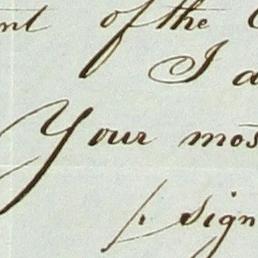 nt of the
I a
Your mos
/. sign